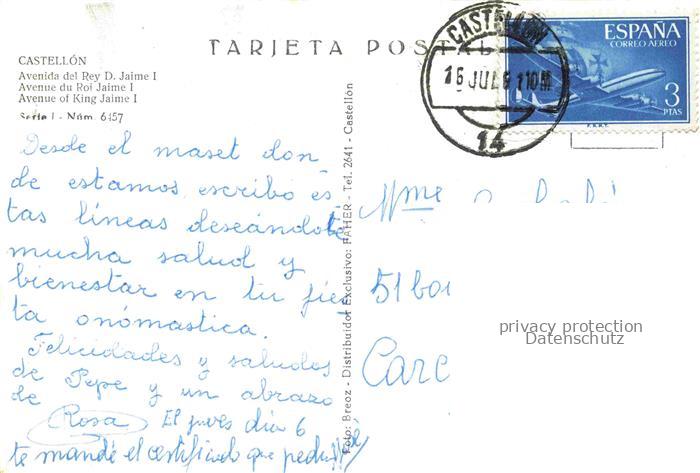 TARJETA POSTAL
CASTELLÓN
Avenida del Rey D. Jaime I
Avenue du Roi Jaime I
Avenue of King Jaime I
Serie I - Núm. 6457
Desde el maset don
de estamos escribo es
tas líneas deseándote
mucha salud y
bienestar en tu fies
ta onómastica.
Felicidades y saludos
de Pepe y un abrazo
de
Rosa El jueves dia 6
te mandé el certificado que
Foto: Breoz - Distribuidor Exclusivo: FAHER - Tel. 2641 - Castellón
CASTELLON
16 JUL 6 10M
14
ESPAÑA
CORREO AEREO
3
PTAS
F.N.M.T.
Mme
51 bou
Carc
privacy protection
Datenschutz